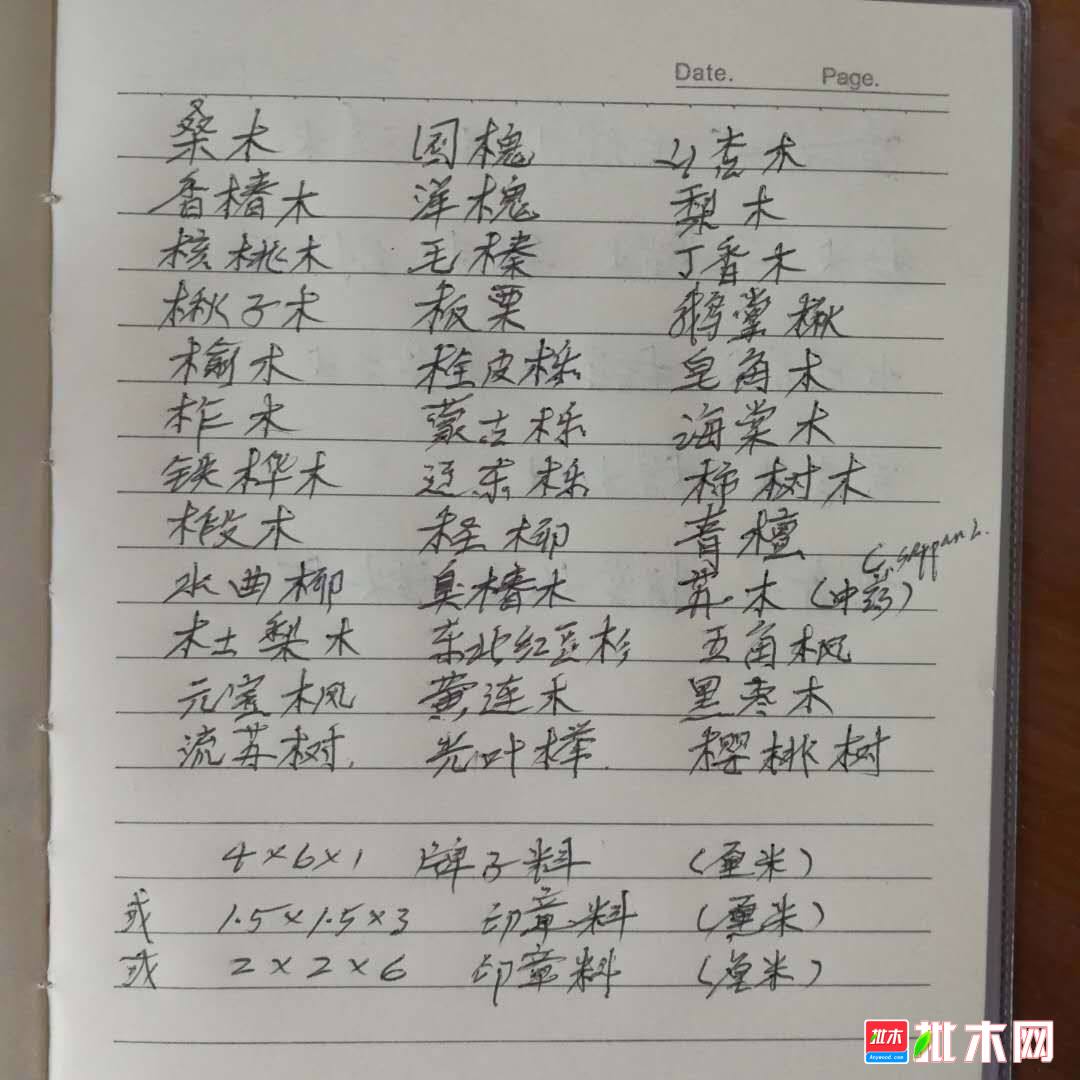 Date. Page.
桑木 国槐 山杏木
香椿木 洋槐 梨木
核桃木 毛榛 丁香木
楸子木 板栗 鹅掌楸
榆木 栓皮栎 皂角木
柞木 蒙古栎 海棠木
铁桦木 辽东栎 柿树木
椴木 柽柳 青檀
水曲柳 臭椿木 苏木（中药） C. sappan L.
本土梨木 东北红豆杉 五角枫
元宝枫 黄连木 黑枣木
流苏树. 光叶榉. 樱桃树
4×6×1 牌子料 （厘米）
或 1.5×1.5×3 印章料 （厘米）
或 2×2×6 印章料 （厘米）
批木 批木网
Anywood.com